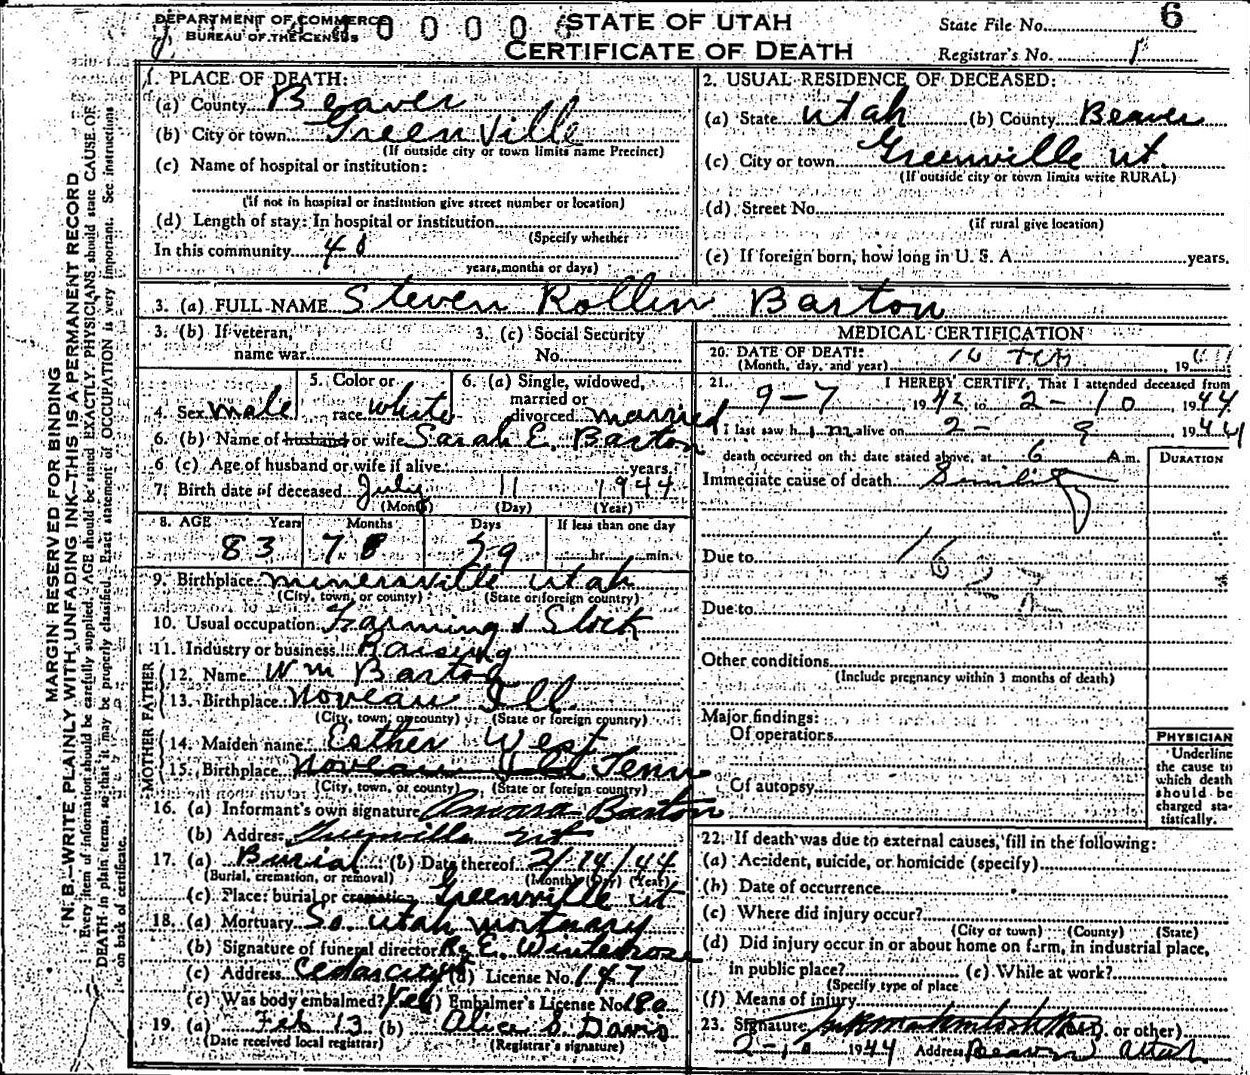 DEPARTMENT OF COMMERCE
BUREAU OF THE CENSUS
0 0 0 0 6
STATE OF UTAH
CERTIFICATE OF DEATH
State File No. 6
Registrar's No. 1
MARGIN RESERVED FOR BINDING
N. B.—WRITE PLAINLY WITH UNFADING INK—THIS IS A PERMANENT RECORD
Every item of information should be carefully supplied. AGE should be stated EXACTLY. PHYSICIANS should state CAUSE OF
DEATH in plain terms, so that it may be properly classified. Exact statement of OCCUPATION is very important. See instructions
on back of certificate.
1. PLACE OF DEATH:
(a) County Beaver
(b) City or town Greenville
(If outside city or town limits name Precinct)
(c) Name of hospital or institution:
(If not in hospital or institution give street number or location)
(d) Length of stay: In hospital or institution
(Specify whether
In this community
years, months or days)
2. USUAL RESIDENCE OF DECEASED:
(a) State Utah (b) County Beaver
(c) City or town Greenville Ut.
(If outside city or town limits write RURAL)
(d) Street No.
(if rural give location)
(e) If foreign born, how long in U. S. A. years.
3. (a) FULL NAME Steven Rollin Barton
3. (b) If veteran, name war
3. (c) Social Security No.
4. Sex male
5. Color or race white
6. (a) Single, widowed, married or divorced married
6. (b) Name of husband or wife Sarah E. Barton
6 (c) Age of husband or wife if alive years.
7. Birth date of deceased July 11 1944
(Month) (Day) (Year)
8. AGE Years Months Days If less than one day
83 7 29 hr. min.
9. Birthplace Minersville Utah
(City, town, or county) (State or foreign country)
10. Usual occupation Farming & Stock
11. Industry or business Raising
FATHER
12. Name Wm Barton
13. Birthplace Noveau Ill
(City, town, or county) (State or foreign country)
MOTHER
14. Maiden name Esther West
15. Birthplace Noveau Ill Tenn
(City, town, or county) (State or foreign country)
16. (a) Informant's own signature Amara Barton
(b) Address Greenville Ut
17. (a) Burial (b) Date thereof 2/14/44
(Burial, cremation, or removal) (Month) (Day) (Year)
(c) Place: burial or cremation Greenville Ut
18. (a) Mortuary So. Utah Mortuary
(b) Signature of funeral director E. Winterrose
(c) Address Cedar City (d) License No. 147
(e) Was body embalmed? Yes (f) Embalmer's License No. 180
19. (a) Feb 13 (b) Alice S. Davis
(Date received local registrar) (Registrar's signature)
MEDICAL CERTIFICATION
20. DATE OF DEATH: 10 Feb 19
(Month, day, and year)
21. I HEREBY CERTIFY, That I attended deceased from
9-7, 1942 to 2-10, 1944
I last saw him alive on 2-9 1944
death occurred on the date stated above, at 6 A.m.
DURATION
Immediate cause of death Senility
Due to 162
Due to
Other conditions
(Include pregnancy within 3 months of death)
Major findings:
Of operations
Of autopsy
PHYSICIAN
Underline
the cause to
which death
should be
charged sta-
tistically.
22. If death was due to external causes, fill in the following:
(a) Accident, suicide, or homicide (specify)
(b) Date of occurrence
(c) Where did injury occur?
(City or town) (County) (State)
(d) Did injury occur in or about home on farm, in industrial place,
in public place? (e) While at work?
(Specify type of place
(f) Means of injury
23. Signature (M.D. or other)
2-10 1944 Address Beaver Utah